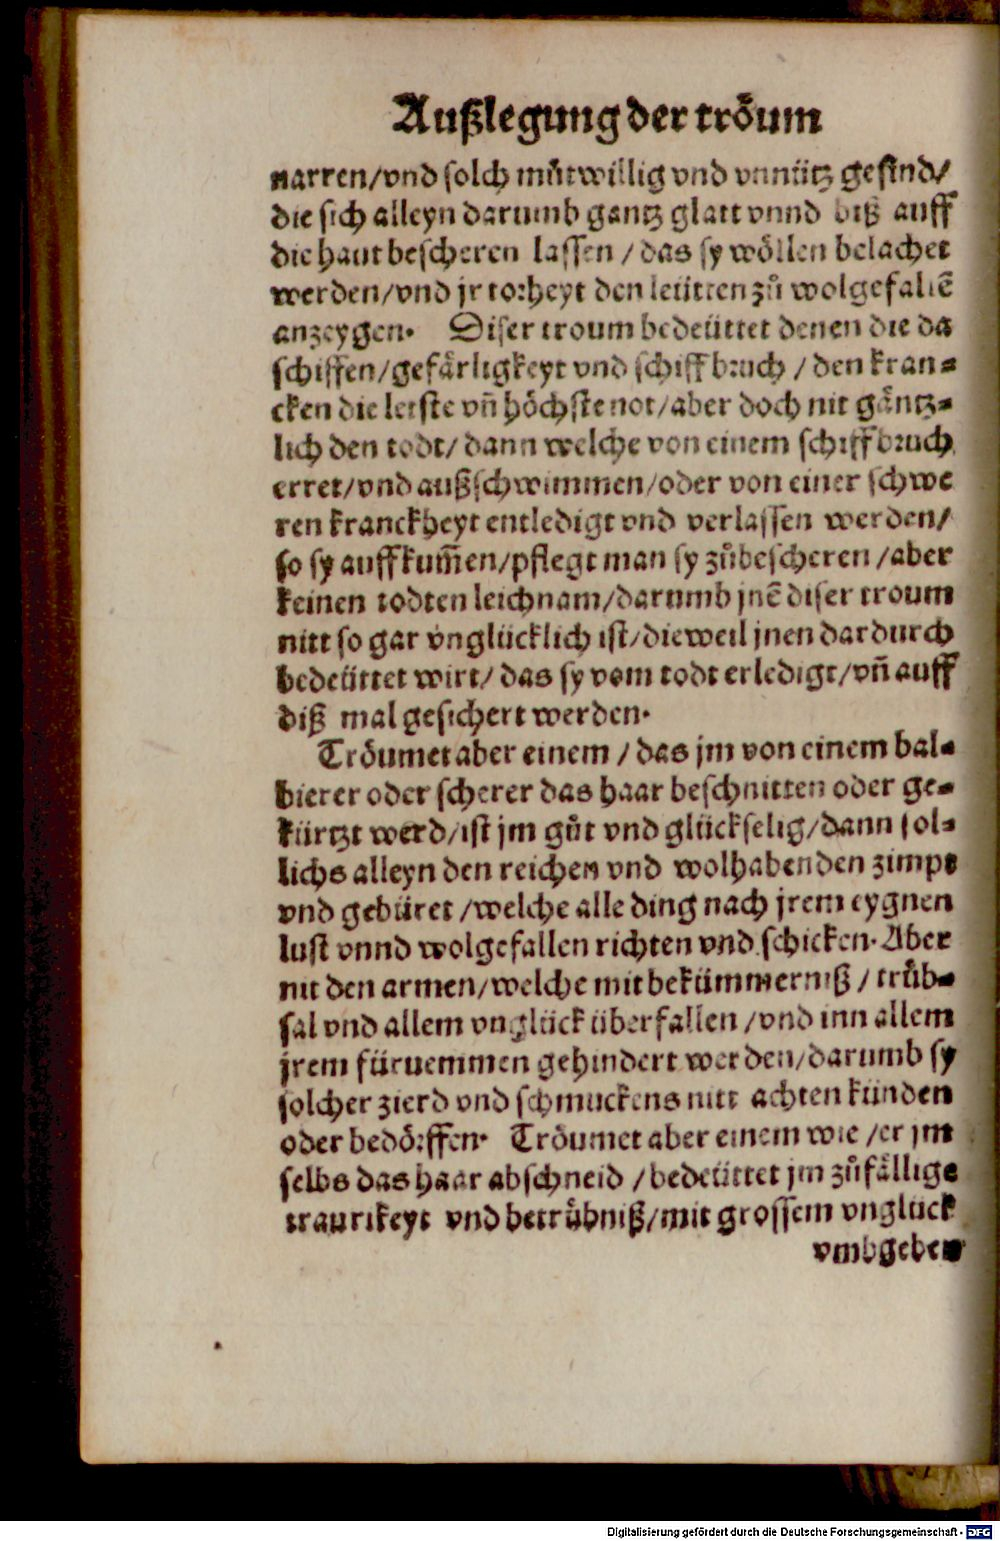 Außlegung der tröum
narren/vnd solch můtwillig vnd vnnütz gesind/
die sich alleyn darumb gantz glatt vnnd biß auff
die haut bescheren lassen / das sy wöllen belachet
werden/vnd jr torheyt den leütten zů wolgefallē
anzeygen. Diser troum bedeüttet denen die da
schiffen/gefärligkeyt vnd schiffbruch / den kran⸗
cken die letste vñ höchste not/aber doch nit gäntz⸗
lich den todt/ dann welche von einem schiffbruch
erret/vnd außschwimmen/oder von einer schwe
ren kranckheyt entledigt vnd verlassen werden/
so sy auffkum̄en/pflegt man sy zůbescheren /aber
keinen todten leichnam/darumb jnē diser troum
nitt so gar vnglücklich ist/dieweil jnen dardurch
bedeüttet wirt/ das sy vom todt erledigt/vñ auff
diß mal gesichert werden.
Tröumet aber einem / das jm von einem bal⸗
bierer oder scherer das haar beschnitten oder ge⸗
kürtzt werd/ist jm gůt vnd glückselig/dann sol⸗
lichs alleyn den reichen vnd wolhabenden zimpt
vnd gebüret /welche alle ding nach jrem eygnen
lust vnnd wolgefallen richten vnd schicken. Aber
nit den armen/welche mit bekümmerniß / trůb⸗
sal vnd allem vnglück überfallen /vnd inn allem
jrem fürnemmen gehindert werden/darumb sy
solcher zierd vnd schmuckens nitt achten künden
oder bedörffen. Tröumet aber einem wie /er jm
selbs das haar abschneid / bedeüttet jm zůfällige
traurikeyt vnd betrůbniß/mit grossem vnglück
vmbgeben
Digitalisierung gefördert durch die Deutsche Forschungsgemeinschaft - DFG